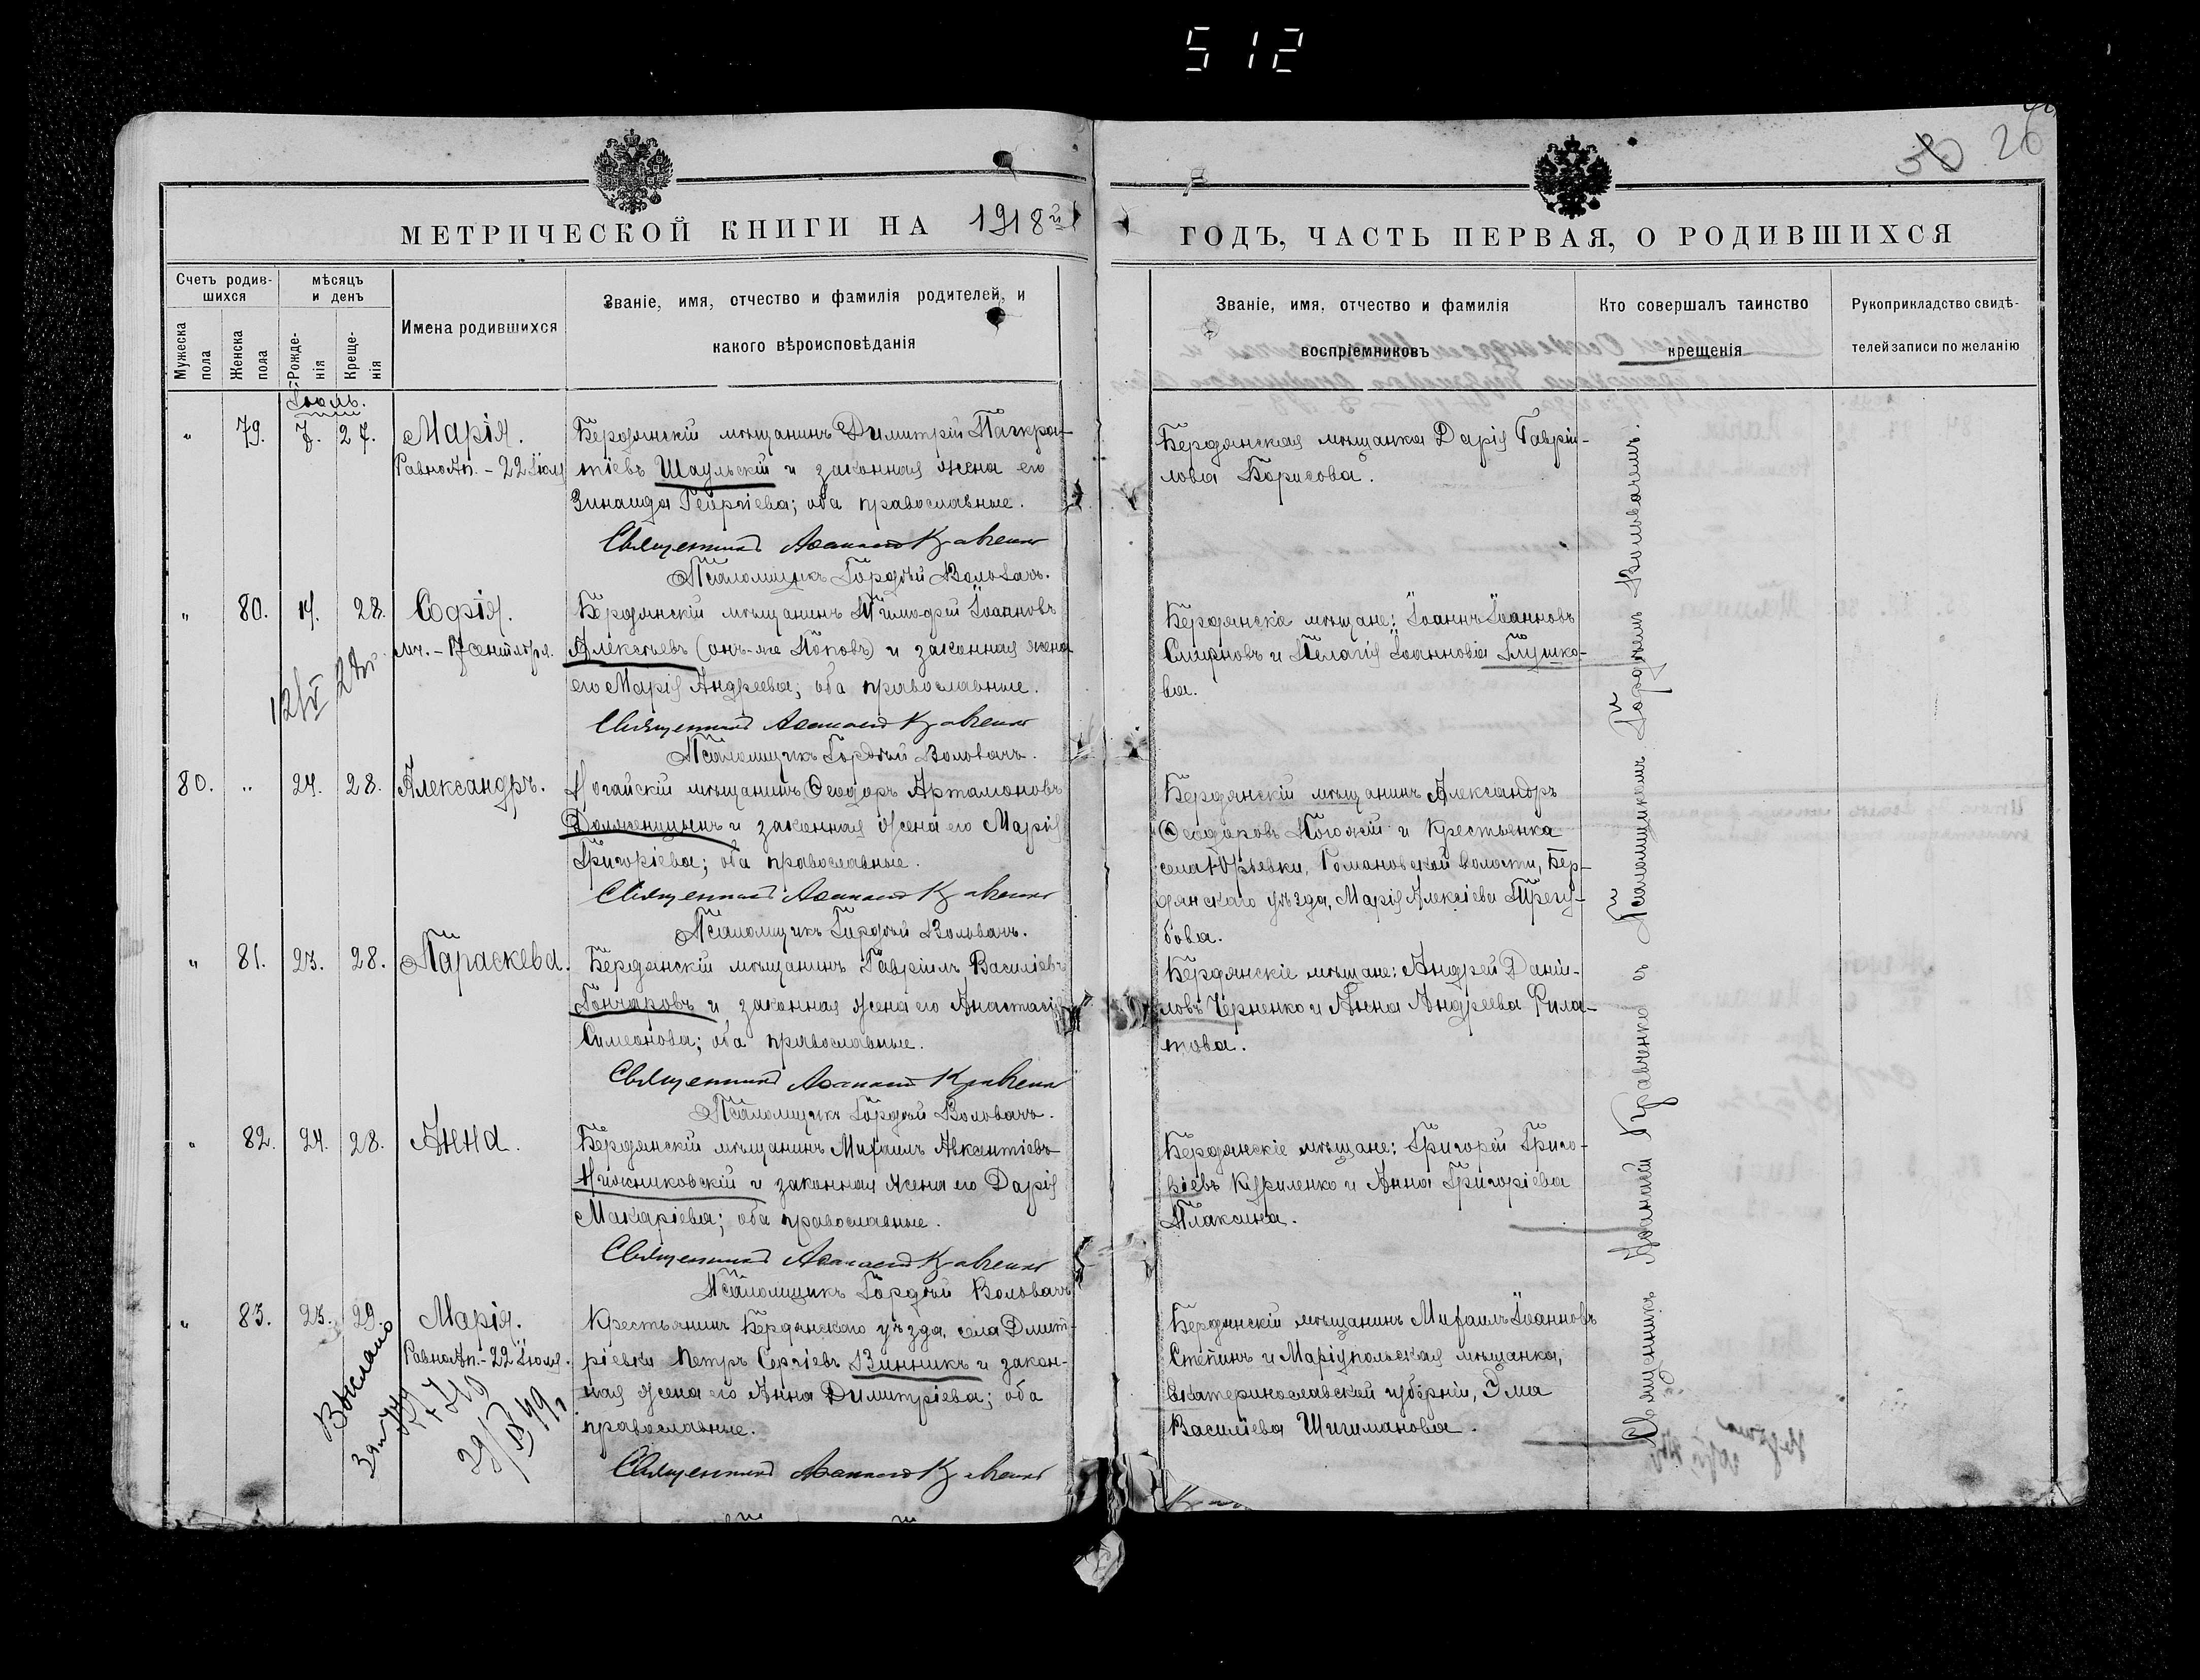 512
26
МЕТРИЧЕСКОЙ КНИГИ НА 1918й
ГОДЪ, ЧАСТЬ ПЕРВАЯ, О РОДИВШИХСЯ
Счетъ родив-
шихся
мѣсяцъ
и день
Мужеска
пола
Женска
пола
Рожде-
нія
Креще-
нія
Имена родившихся
Званіе, имя, отчество и фамилія родителей, и
какого вѣроисповѣданія
Званіе, имя, отчество и фамилія
воспріемниковъ
Кто совершалъ таинство
крещенія
Рукоприкладство свидѣ-
телей записи по желанію
Іюль.
" 79. 7. 27. Марія.
РавноАп. - 22 Іюля
Бердянскій мѣщанинъ Димитрій Панкра-
тіевъ Шаульскій и законная жена его
Зинаида Георгіева; оба православные.
Священникъ Іоанній Кравченко
Псаломщикъ Гордѣй Воловачъ.
Бердянская мѣщанка Дарія Гаврі-
лова Борисова.
" 80. 14. 28. Софія.
мч. - 17 сентября.
Бердянскій мѣщанинъ Тимофей Іоанновъ
Алексѣевъ (онъ-же Поповъ) и законная жена
его Марія Андреева; оба православные.
Священникъ Іоанній Кравченко
Псаломщикъ Гордѣй Воловачъ.
Бердянскіе мѣщане: Іоаннъ Іоанновъ
Смирновъ и Пелагія Іоаннова Глушко-
ва.
80. " 24. 28. Александръ.
Ногайскій мѣщанинъ Ѳеодоръ Артамоновъ
Долженицынъ и законная жена его Марія
Григоріева; оба православные.
Священникъ Іоанній Кравченко
Псаломщикъ Гордѣй Воловачъ.
Бердянскій мѣщанинъ Александръ
Ѳеодоровъ и крестьянка
села Юрьевки, Романовской волости, Бер-
дянскаго уѣзда, Марія Алексіева Трегу-
бова.
" 81. 23. 28. Параскева.
Бердянскій мѣщанинъ Гавріилъ Василіевъ
Гончаровъ и законная жена его Анастасія
Симеонова; оба православные.
Священникъ Іоанній Кравченко
Псаломщикъ Гордѣй Воловачъ.
Бердянскіе мѣщане: Андрей Даніи-
ловъ Черненко и Анна Андреева Фила-
това.
" 82. 24. 28. Анна.
Бердянскій мѣщанинъ Михаилъ Авксентіевъ
Нижниковскій и законная жена его Дарія
Макаріева; оба православные.
Священникъ Іоанній Кравченко
Псаломщикъ Гордѣй Воловачъ
Бердянскіе мѣщане: Григорій Григо-
ріевъ Куриленко и Анна Григоріева
Плаксина.
" 83. 23. 29. Марія.
РавноАп. - 22 Іюля.
Крестьянинъ Бердянскаго уѣзда, села Дмит-
ріевки Петръ Сергіевъ Винникъ и закон-
ная жена его Анна Димитріева; оба
православные.
Священникъ Іоанній Кравченко
Бердянскій мѣщанинъ Михаилъ Іоанновъ
Степинъ и Маріупольская мѣщанка,
Екатеринославской губерніи, Эма
Василіева Шигиманова.
Выслано
Священникъ Іоанній Кравченко съ Псаломщикомъ Гордѣемъ Воловачемъ.